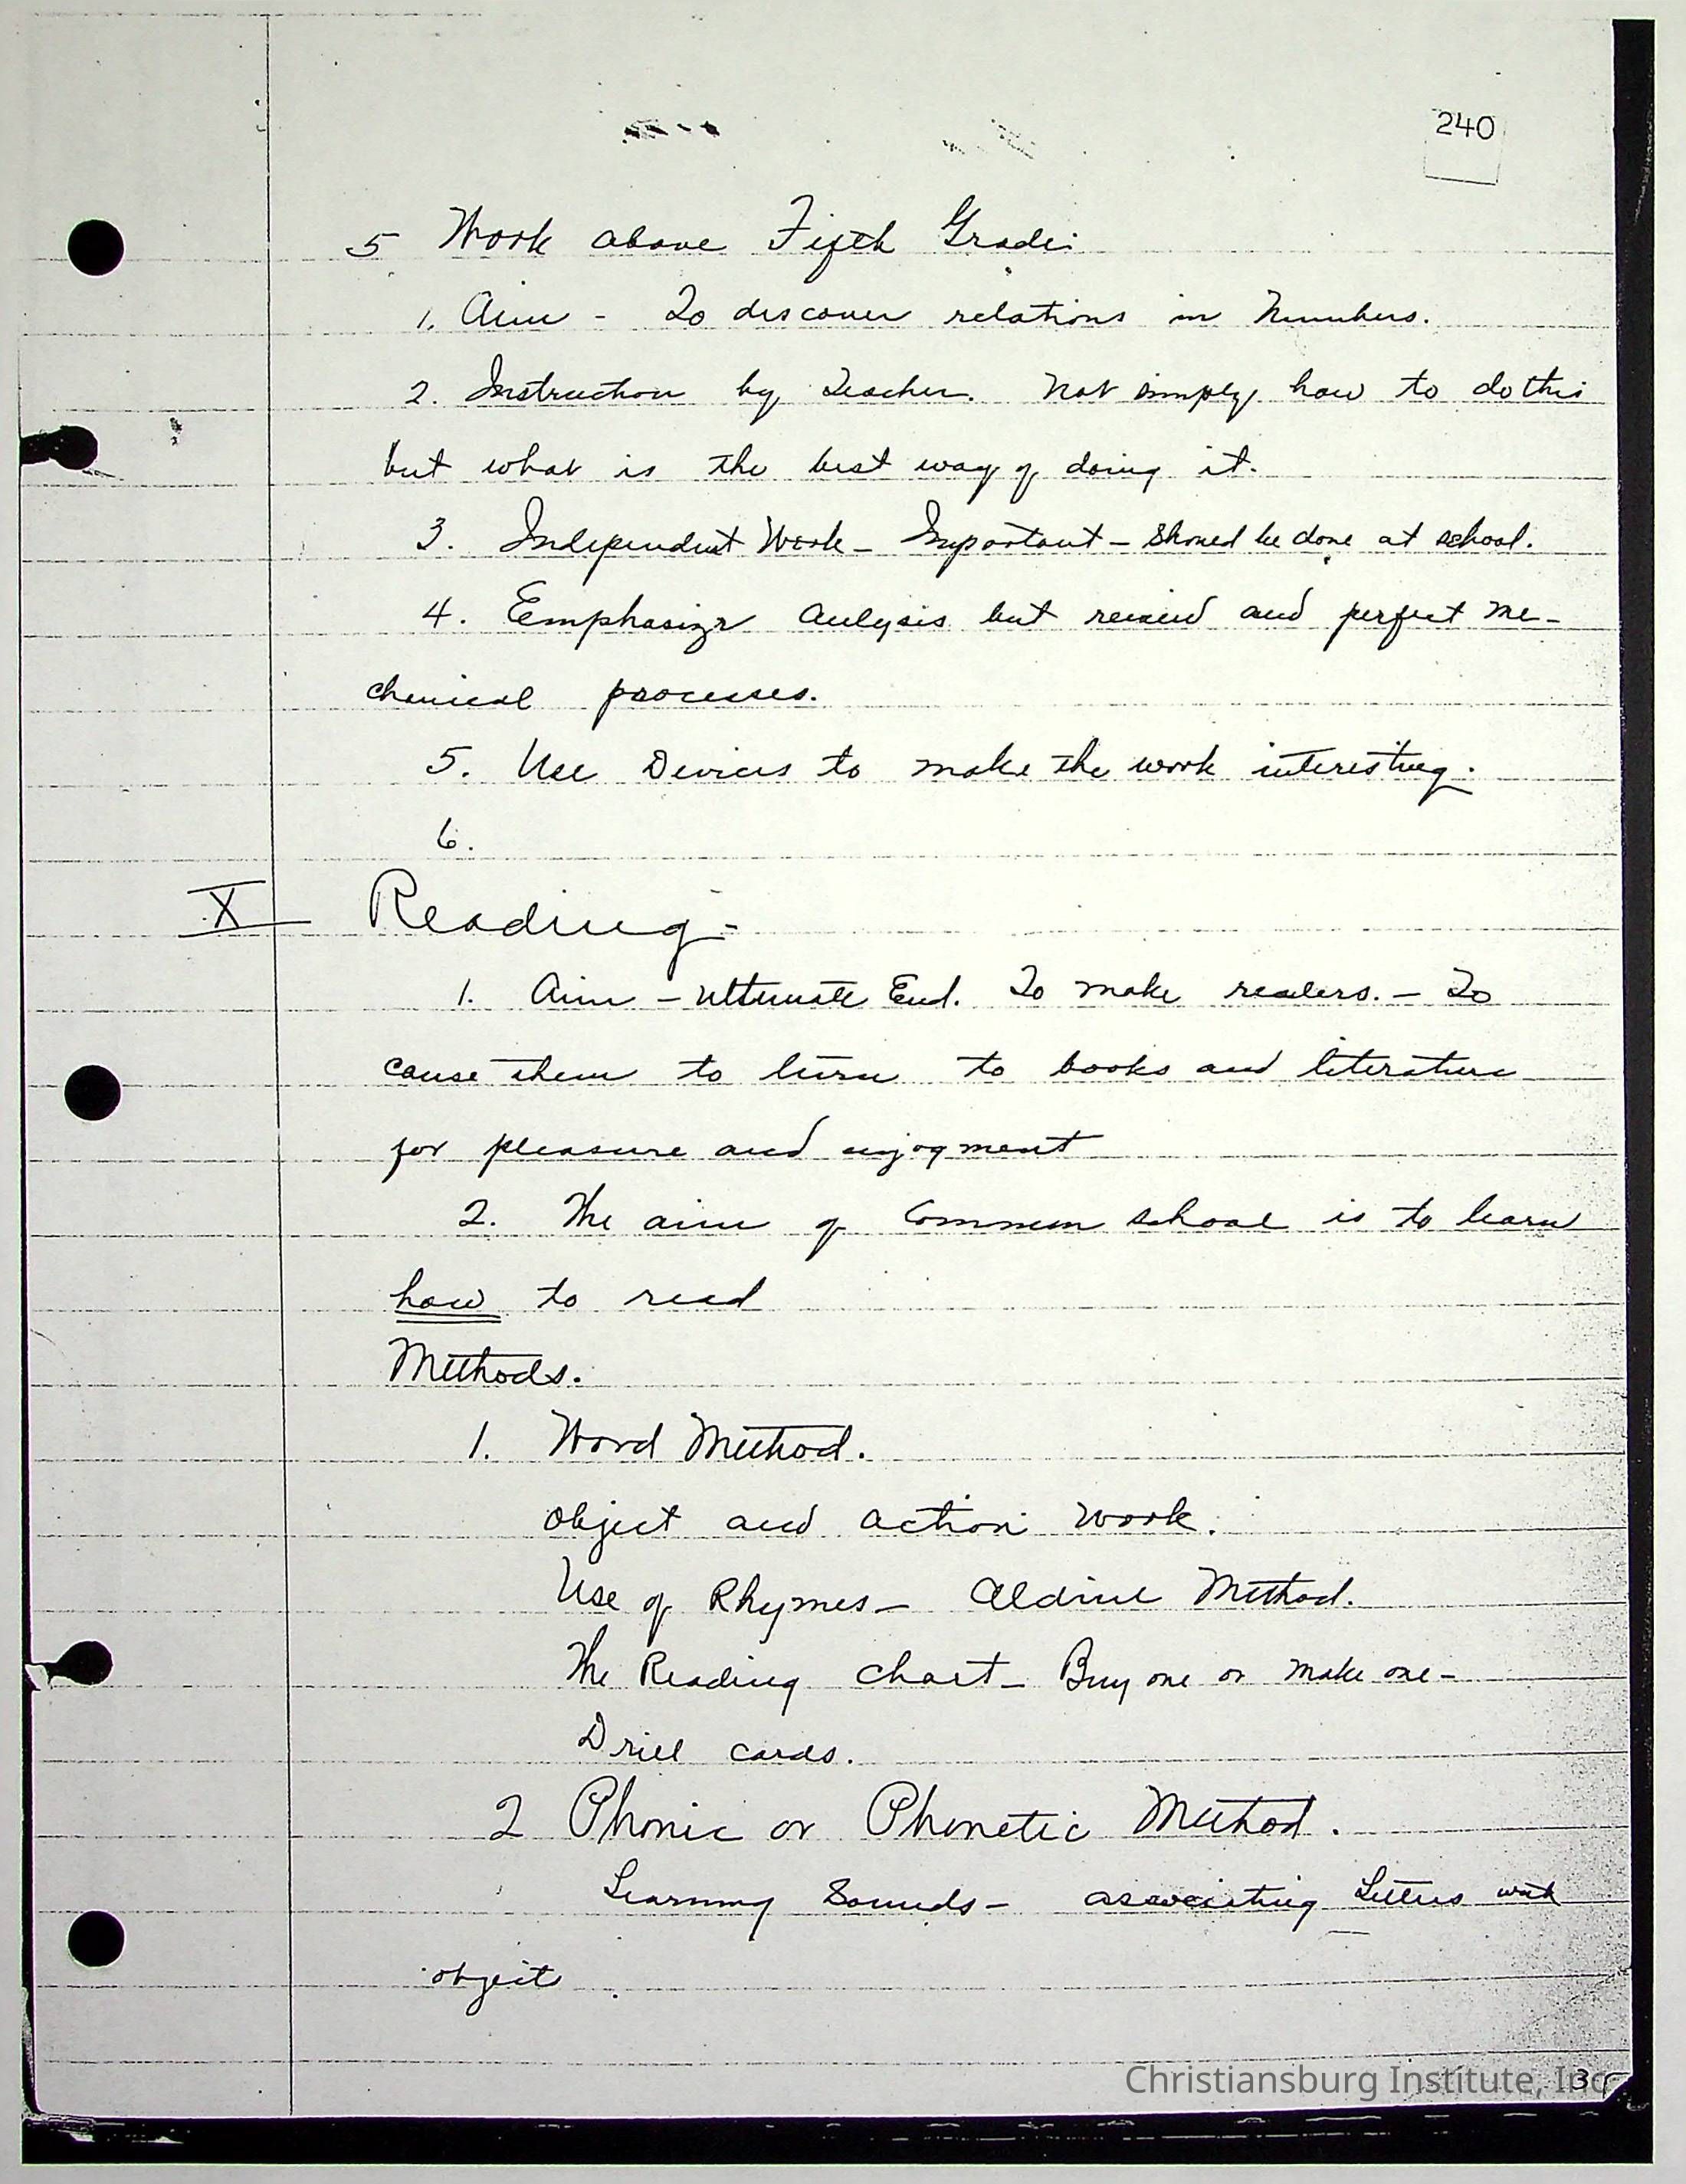 240
5 Work above Fifth Grade:
1. Aim - To discover relations in Numbers.
2. Instruction by Teacher. Not simply how to do this
but what is the best way of doing it.
3. Independent Work - Important - Should be done at school.
4. Eemphasize Anlysis but review and perfect me-
chanical processes.
5. Use Devices to make the work interesting.
6.
X Reading -
1. Aim - Ultimate End. To make readers. - To
cause them to turn to books and literature
for pleasure and enjoyment
2. The aim of Common school is to learn
how to read
Methods.
1. Word Method.
Object and action work.
Use of Rhymes - Aldine Method.
The Reading chart - Buy one or make one -
Drill cards.
2 Phonic or Phonetic Method.
Learning Sounds - associating Letters with
object
Christiansburg Institute, Inc